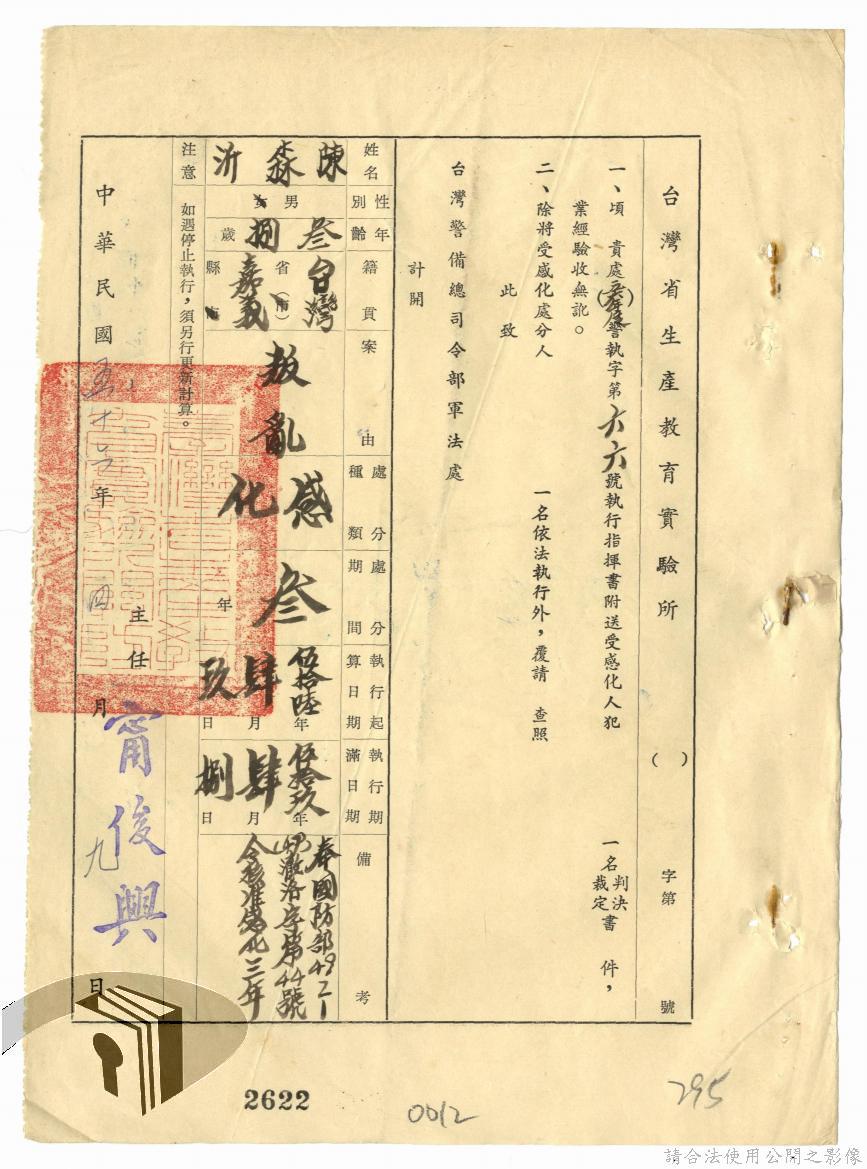 台灣省生產教育實驗所
( )
字第
號
一、頃 貴處
警執字第六六號執行指揮書附送受感化人犯
一名判決裁定書 件，
業經驗收無訛。
二、除將受感化處分人 一名依法執行外，覆請 查照
此致
台灣警備總司令部軍法處
計開
姓名
陳淼沂
性別
男
年齡
叁捌歲
籍貫
台灣省（市）
嘉義縣
案由
叛亂
處分種類
感化
處分期間
叁年
執行起算日期
伍拾陸年肆月玖日
執行期滿日期
伍拾玖年肆月捌日
備考
奉國防部49.2.1
字第44號
令核准感化三年
注意
如遇停止執行，須另行更新計算。
主任
甯俊興
中華民國五十六年四月九日
2622
0012
295
請合法使用公開之影像